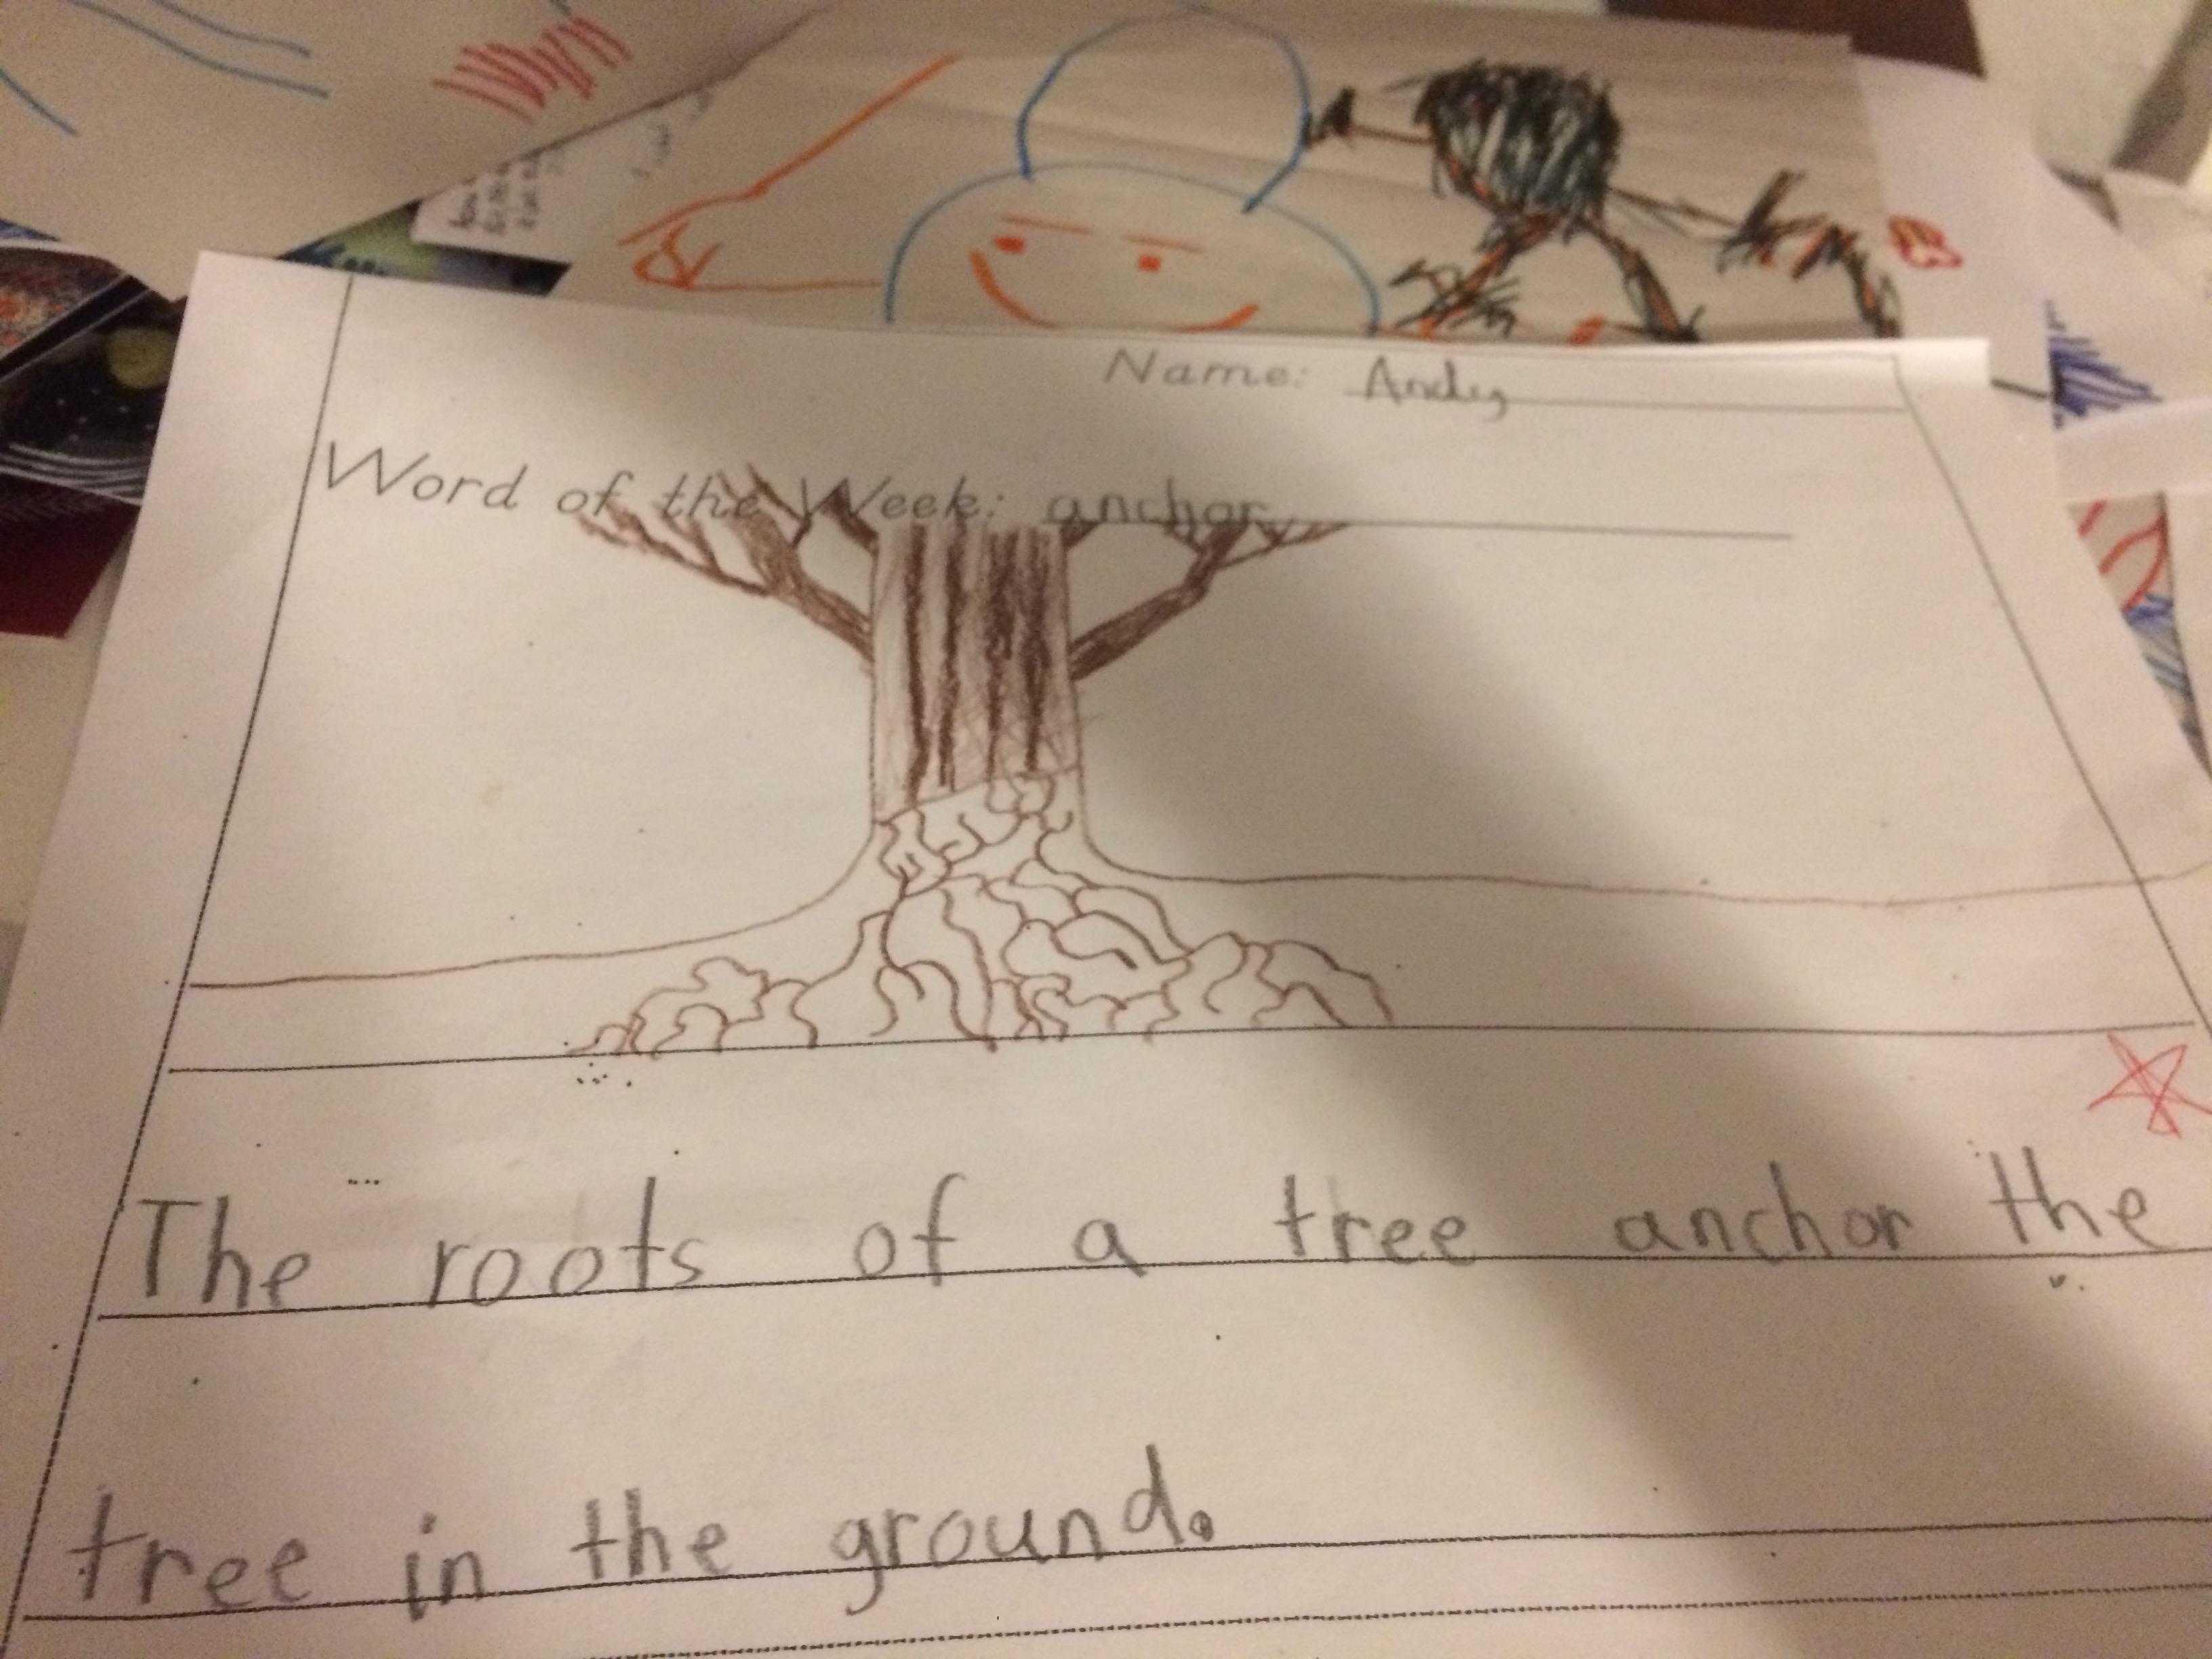 Name: Andy
Word of the Week: anchor
The roots of a tree anchor the
tree in the ground.